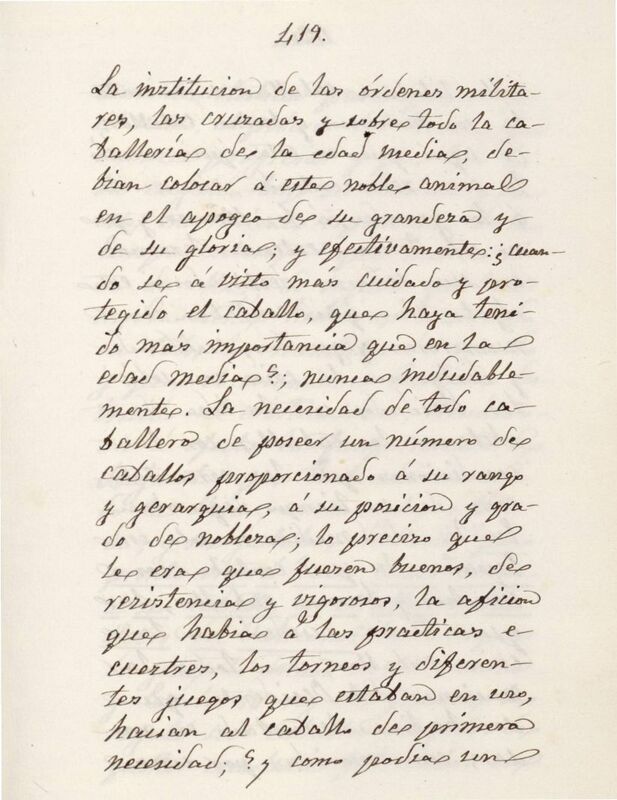 419.
La institucion de las órdenes milita-
res, las cruzadas y sobre todo la ca-
ballería de la edad media, de-
bian colocar á este noble animal
en el apogeo de su grandeza y
de su gloria; y efectivamente: ¿cuan-
do se á visto más cuidado y pro-
tegido el caballo, que haya teni-
do más importancia que en la
edad media?; nunca indudable-
mente. La necesidad de todo ca-
ballero de poseer un número de
caballos proporcionado á su rango
y gerarquia, á su posicion y gra-
do de nobleza; lo precizo que
le era que fuesen buenos, de
rezistencia y vigorosos, la aficion
que habia á las practicas e-
cuestres, los torneos y diferen-
tes juegos que estaban en uso,
hacian al caballo de primera
necesidad; ¿y como podia un